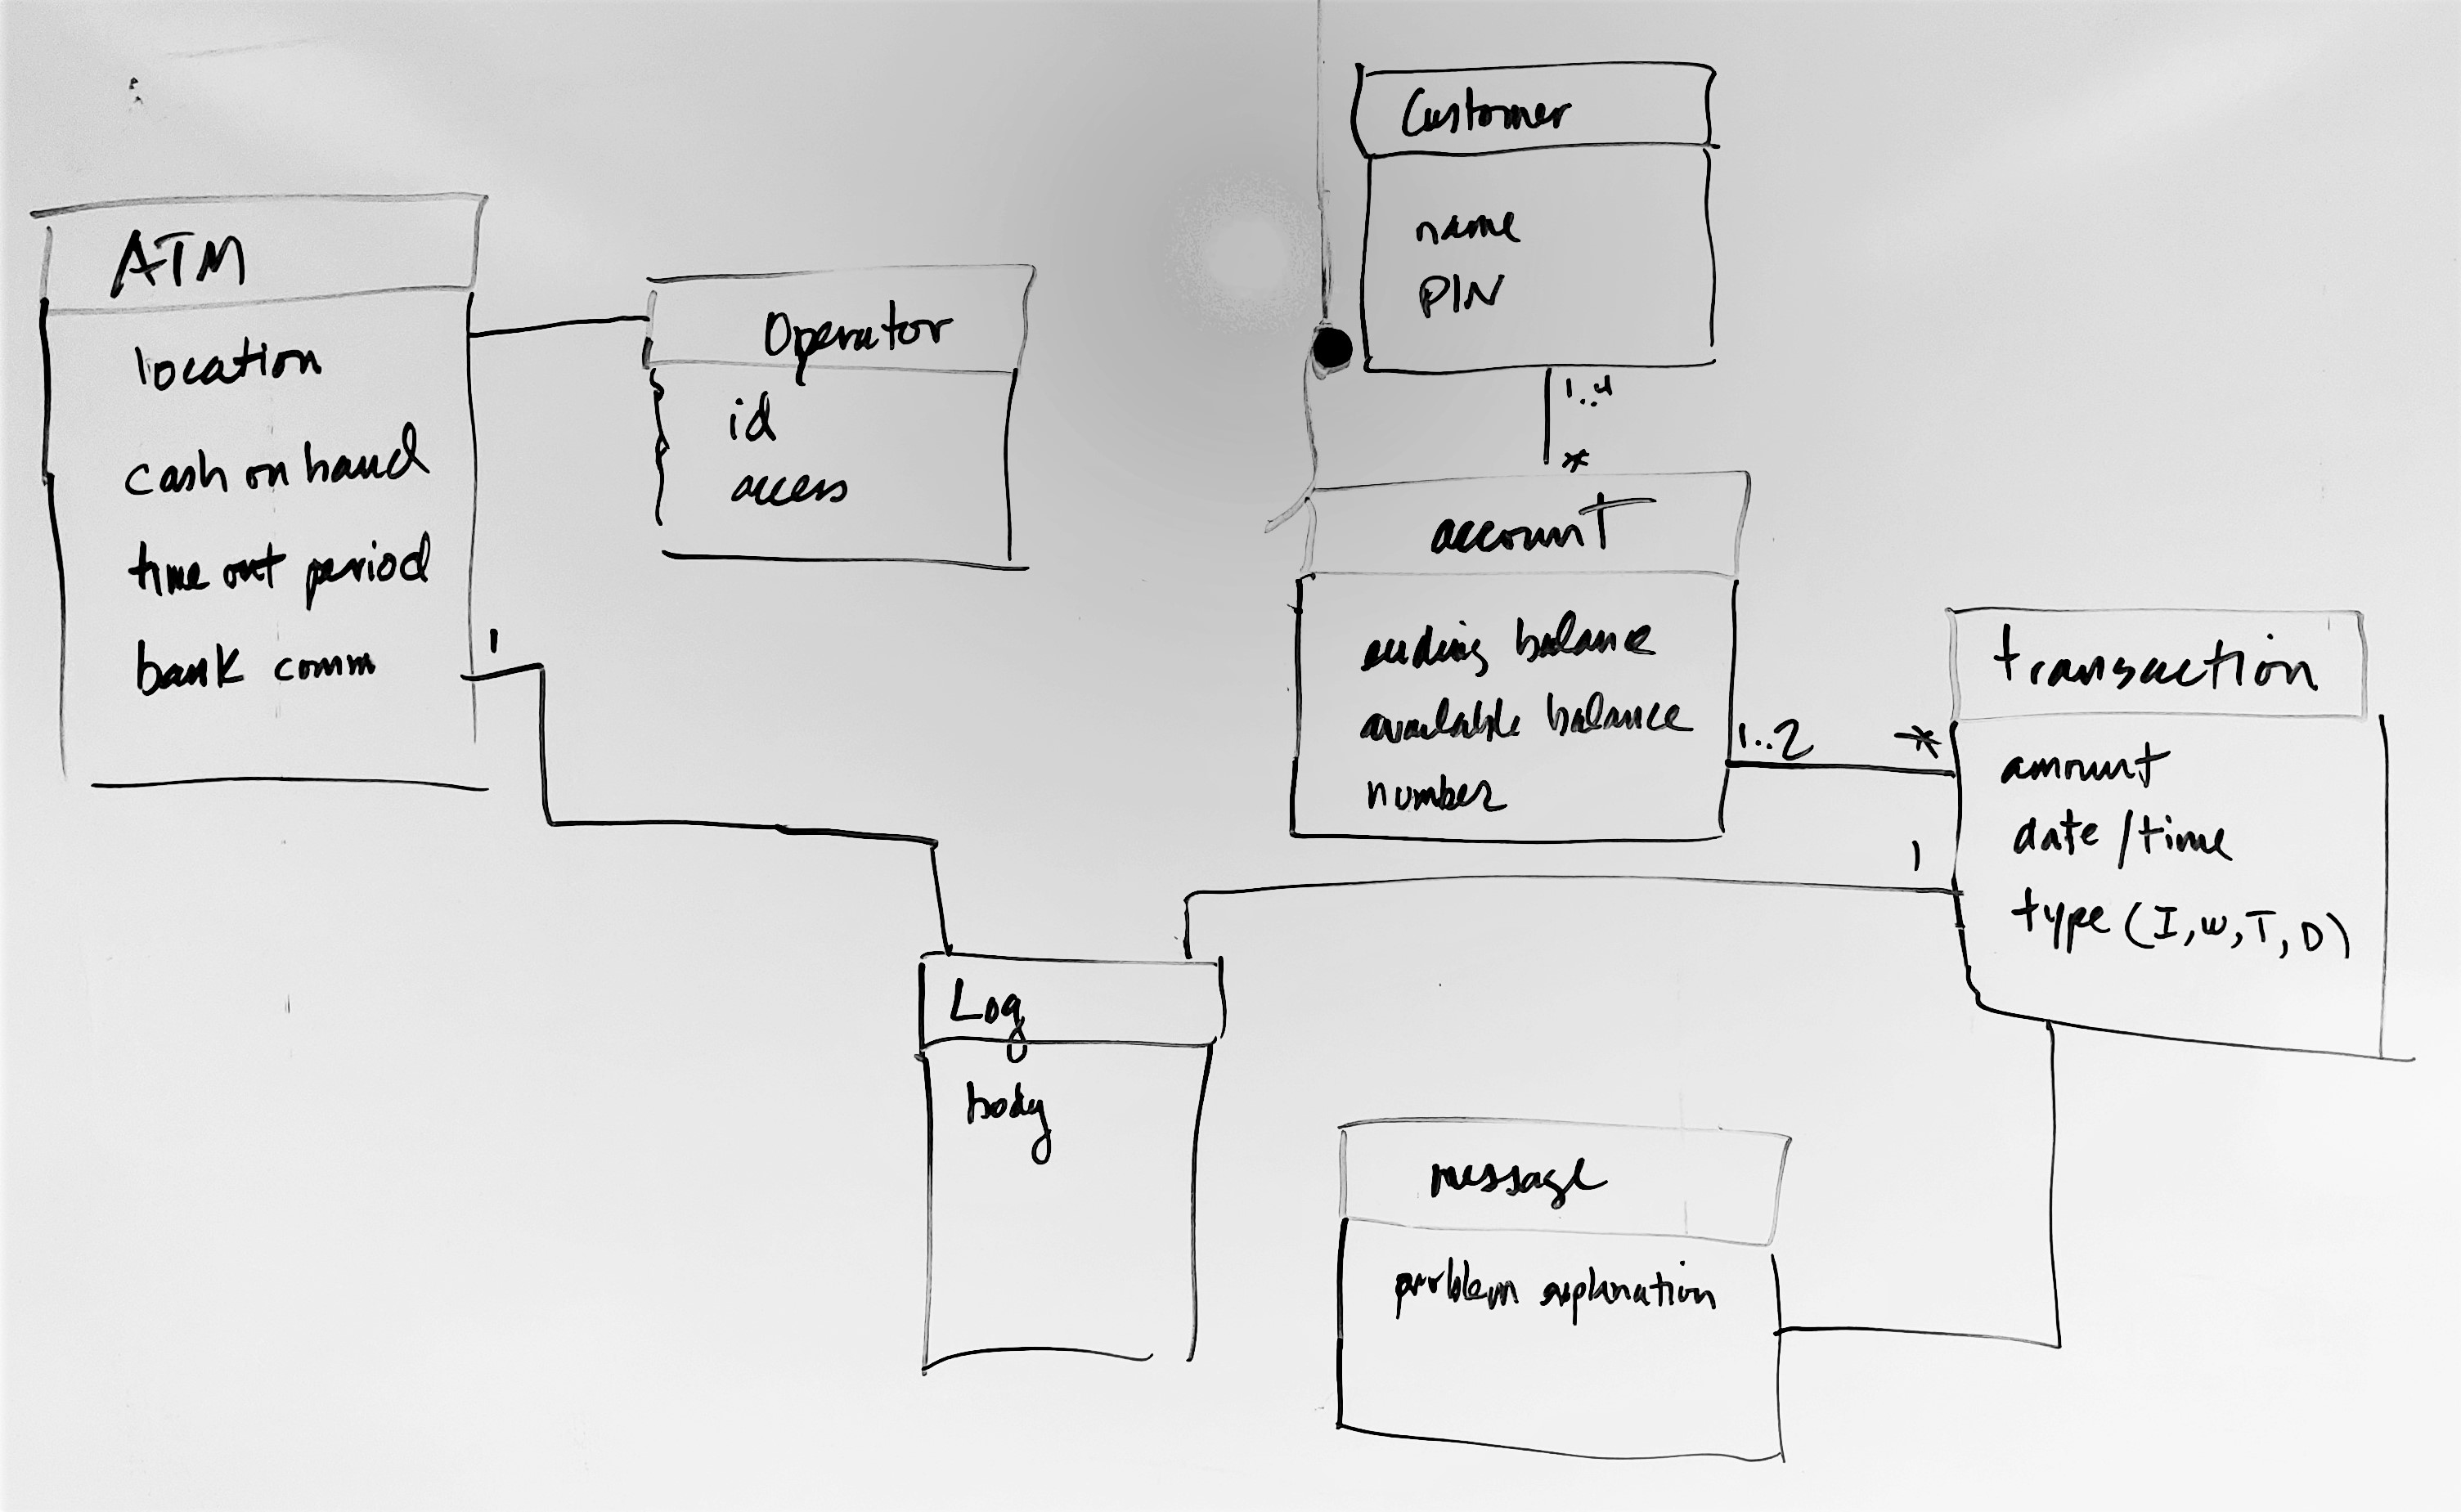 ATM
location
cash on hand
time out period
bank comm
1
Operator
id
access
Customer
name
PIN
1..4
*
account
ending balance
available balance
number
1..2
*
transaction
amount
date/time
type (I, W, T, D)
1
Log
body
message
problem explanation